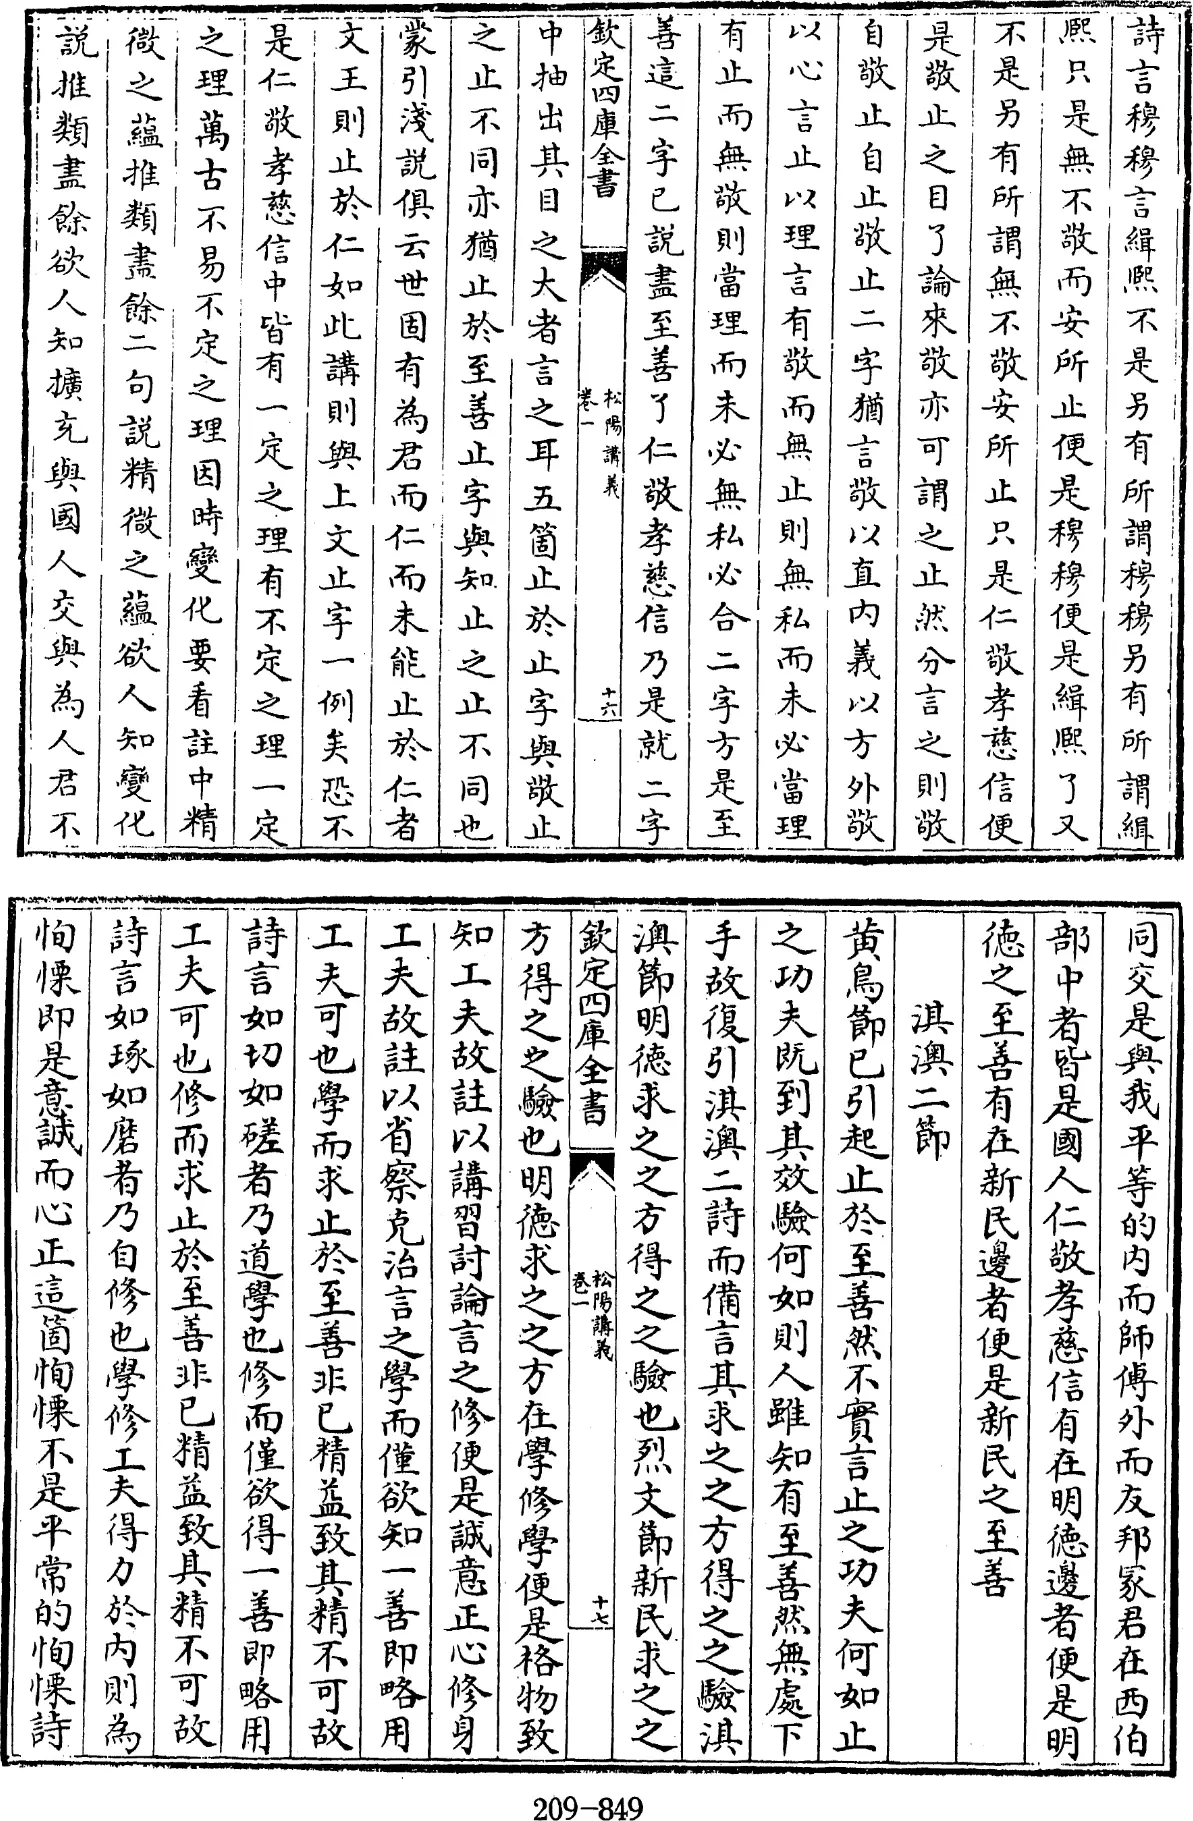 詩言穆穆言緝熙不是另有所謂穆穆另有所謂緝
熙只是無不敬而安所止便是穆穆便是緝熙了又
不是另有所謂無不敬安所止只是仁敬孝慈信便
是敬止之目了論來敬亦可謂之止然分言之則敬
自敬止自止敬止二字猶言敬以直内義以方外敬
以心言止以理言有敬而無止則無私而未必當理
有止而無敬則當理而未必無私必合二字方是至
善這二字已説盡至善了仁敬孝慈信乃是就二字
欽定四庫全書
松陽講義
卷一
十六
中抽出其目之大者言之耳五箇止於止字與敬止
之止不同亦猶止於至善止字與知止之止不同也
蒙引淺説俱云世固有為君而仁而未能止於仁者
文王則止於仁如此講則與上文止字一例矣恐不
是仁敬孝慈信中皆有一定之理有不定之理一定
之理萬古不易不定之理因時變化要看註中精
微之蘊推類盡餘二句説精微之蘊欲人知變化
説推類盡餘欲人知擴充與國人交與為人君不
同交是與我平等的内而師傅外而友邦冢君在西伯
部中者皆是國人仁敬孝慈信有在明徳邊者便是明
徳之至善有在新民邊者便是新民之至善
淇澳二節
黄鳥節已引起止於至善然不實言止之功夫何如止
之功夫既到其效驗何如則人雖知有至善然無處下
手故復引淇澳二詩而備言其求之之方得之之驗淇
澳節明徳求之之方得之之驗也烈文節新民求之之
欽定四庫全書
松陽講義
卷一
十七
方得之之驗也明徳求之之方在學修學便是格物致
知工夫故註以講習討論言之修便是誠意正心修身
工夫故註以省察克治言之學而僅欲知一善即略用
工夫可也學而求止於至善非已精益致其精不可故
詩言如切如磋者乃道學也修而僅欲得一善即略用
工夫可也修而求止於至善非已精益致其精不可故
詩言如琢如磨者乃自修也學修工夫得力於内則為
恂慄即是意誠而心正這箇恂慄不是平常的恂慄詩
209-849